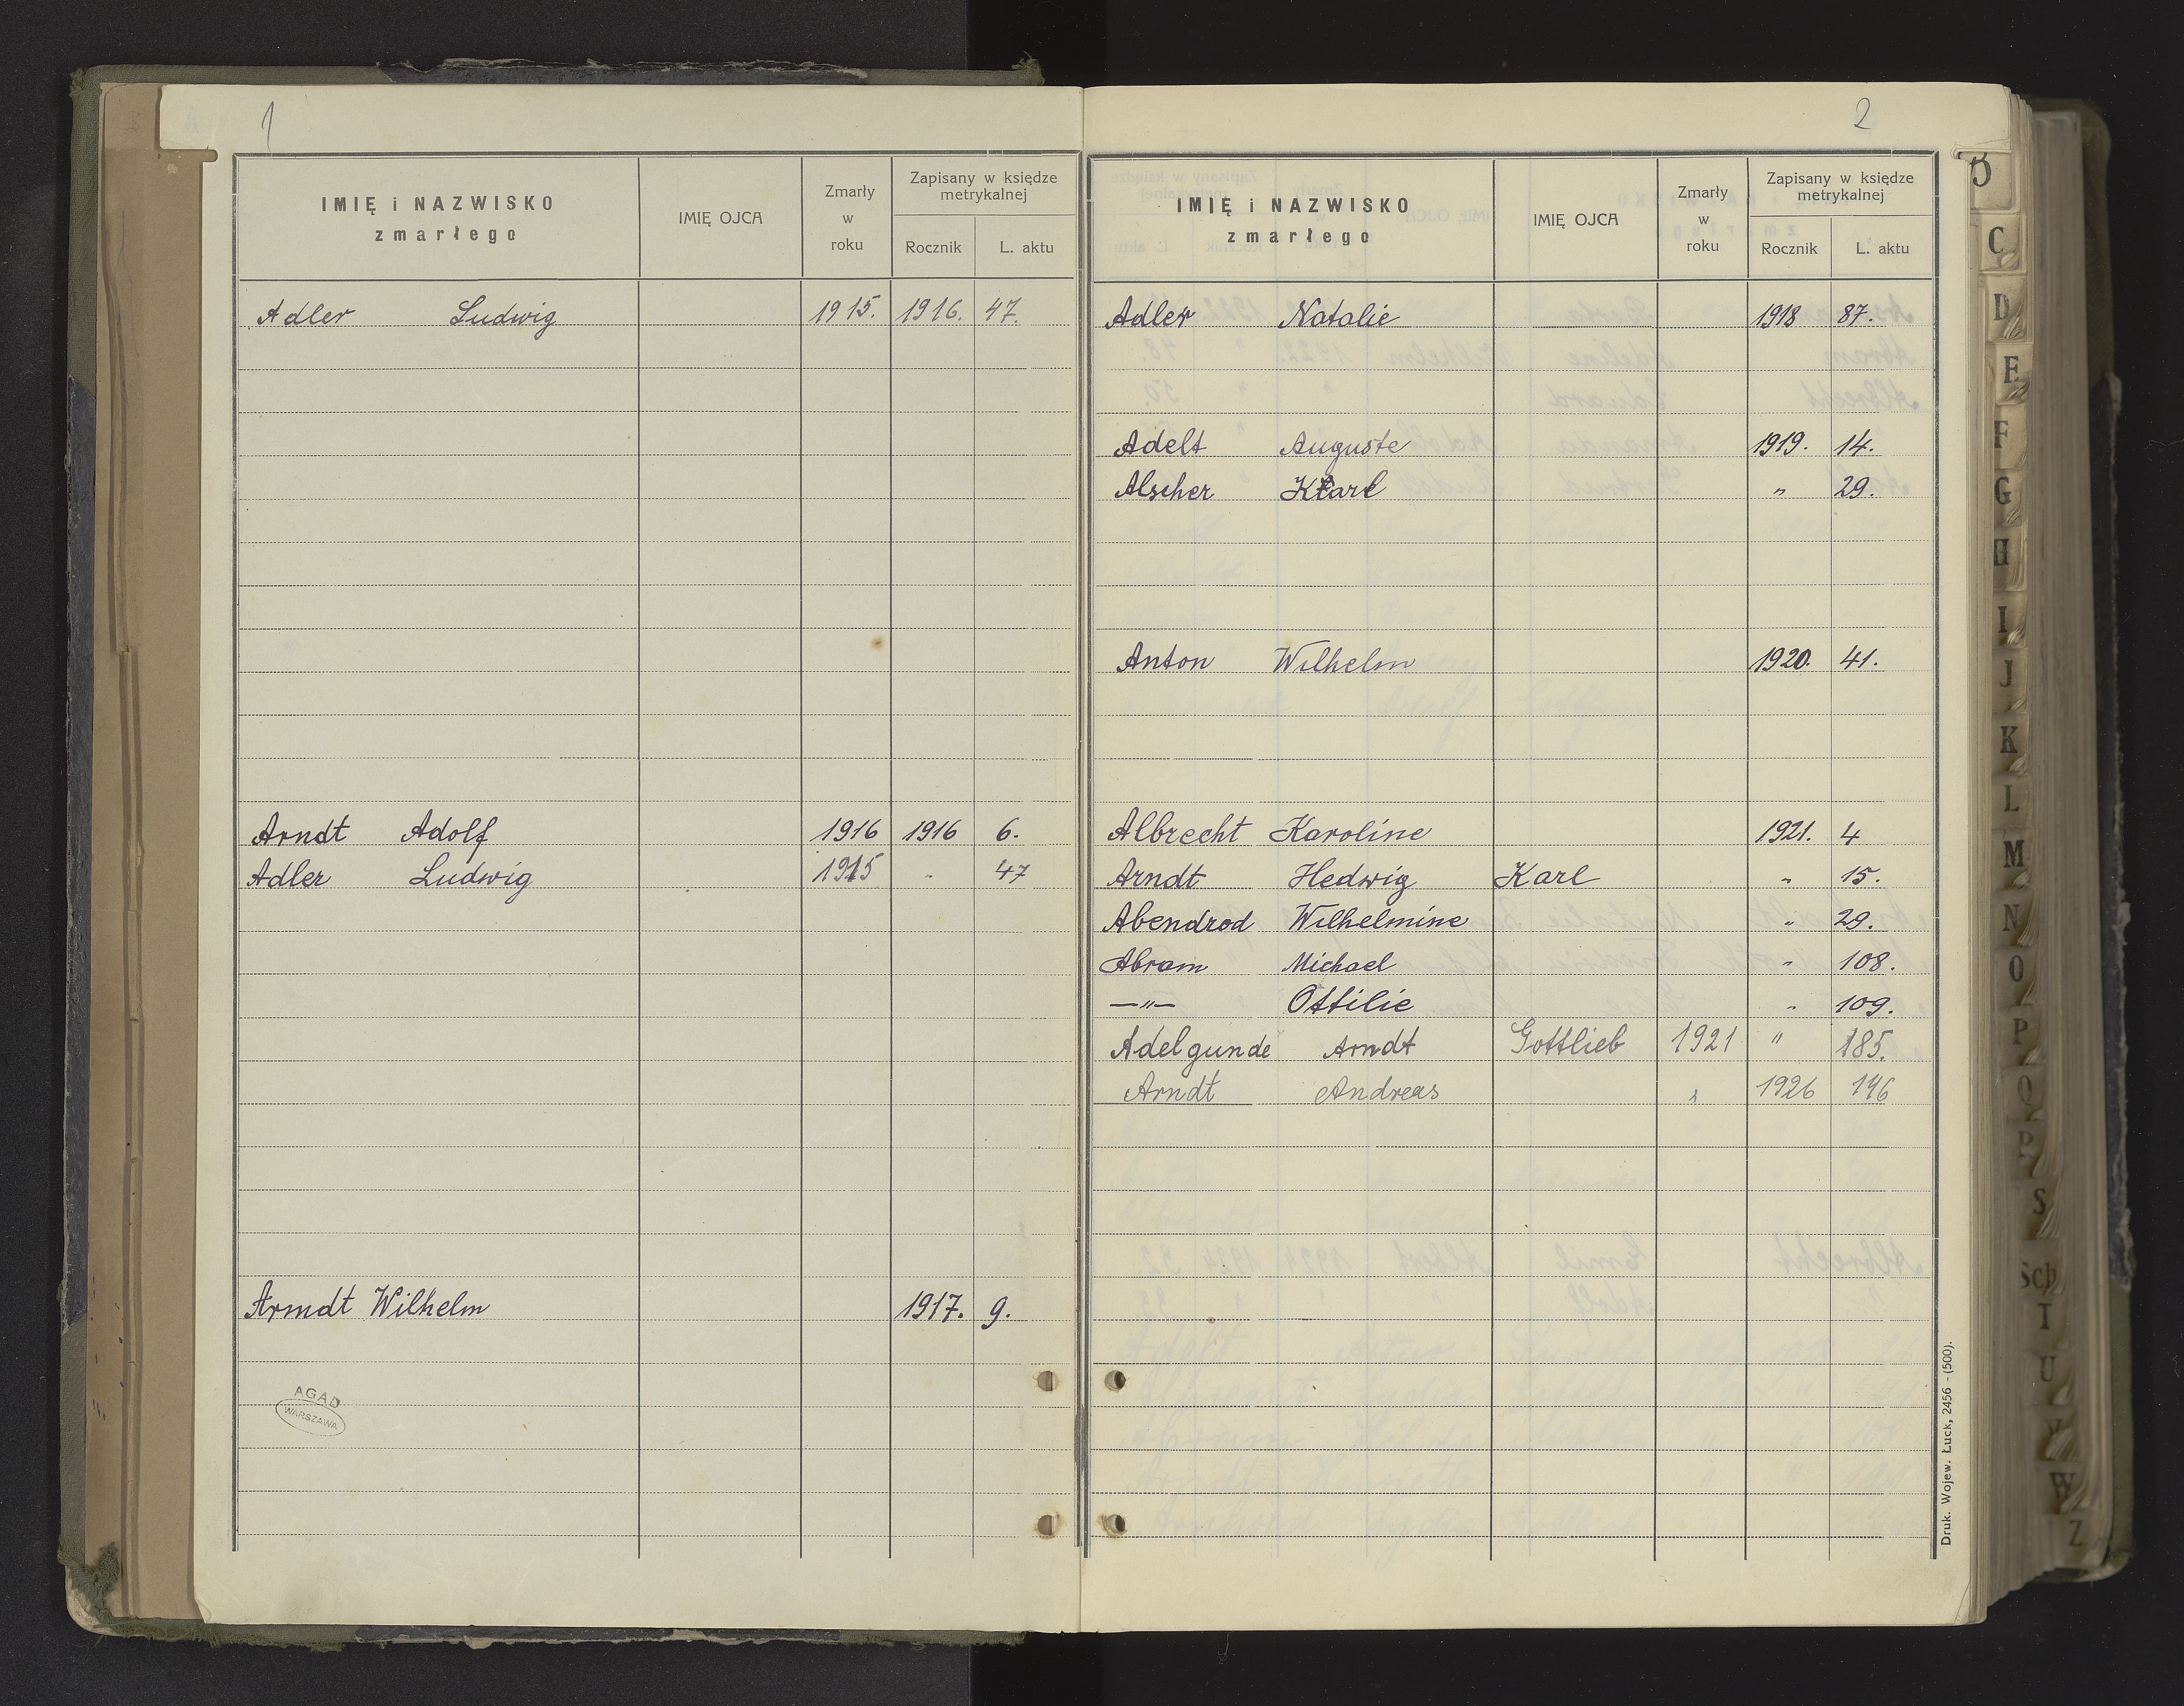 1
IMIĘ i NAZWISKO
zmarłego
IMIĘ OJCA
Zmarły
w
roku
Zapisany w księdze
metrykalnej
Rocznik
L. aktu
Adler Ludwig 1915. 1916. 47.
Arndt Adolf 1916 1916 6.
Adler Ludwig 1915 " 47
Arndt Wilhelm 1917. 9.
AGAD
WARSZAWA
2
IMIĘ i NAZWISKO
zmarłego
IMIĘ OJCA
Zmarły
w
roku
Zapisany w księdze
metrykalnej
Rocznik
L. aktu
Adler Natalie 1918 87.
Adelt Auguste 1919. 14.
Alscher Karl " 29.
Anton Wilhelm 1920. 41.
Albrecht Karoline 1921. 4
Arndt Hedwig Karl " 15.
Abendrod Wilhelmine " 29.
Abram Michael " 108.
—"— Ottilie " 109.
Adelgunde Arndt Gottlieb 1921 " 185.
Arndt Andreas " 1926 146
Druk. Wojew. Łuck, 2456 - (500).
B
C
D
E
F
G
H
I
J
K
L
M
N
O
P
Q
R
S
Sch
T
U
V
W
Z